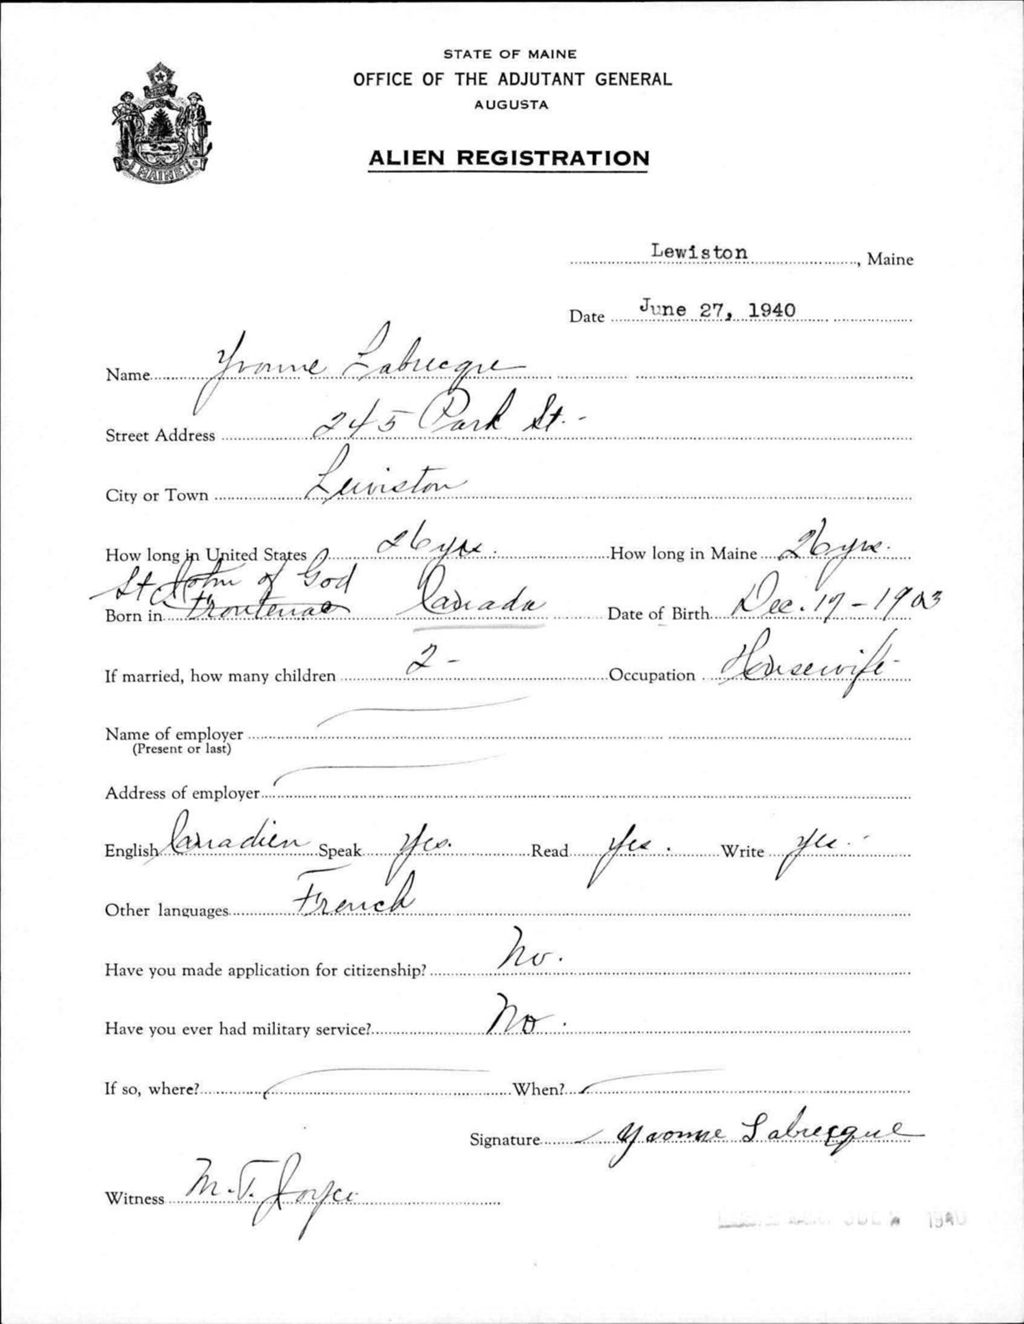 STATE OF MAINE
OFFICE OF THE ADJUTANT GENERAL
AUGUSTA
MAINE
ALIEN REGISTRATION
Lewiston, Maine
Date June 27, 1940
Name Yvonne Labrecque
Street Address 245 Park St.
City or Town Lewiston
How long in United States 26 yrs. How long in Maine 26 yrs.
St John of God
Born in Frontenac Canada Date of Birth Dec. 17 - 1903
If married, how many children 2 - Occupation Housewife -
Name of employer
(Present or last)
Address of employer
English Canadien Speak Yes. Read Yes. Write Yes.
Other languages French
Have you made application for citizenship? No.
Have you ever had military service? No.
If so, where? When?
Signature Yvonne Labrecque
Witness M. T. Joyce
1940